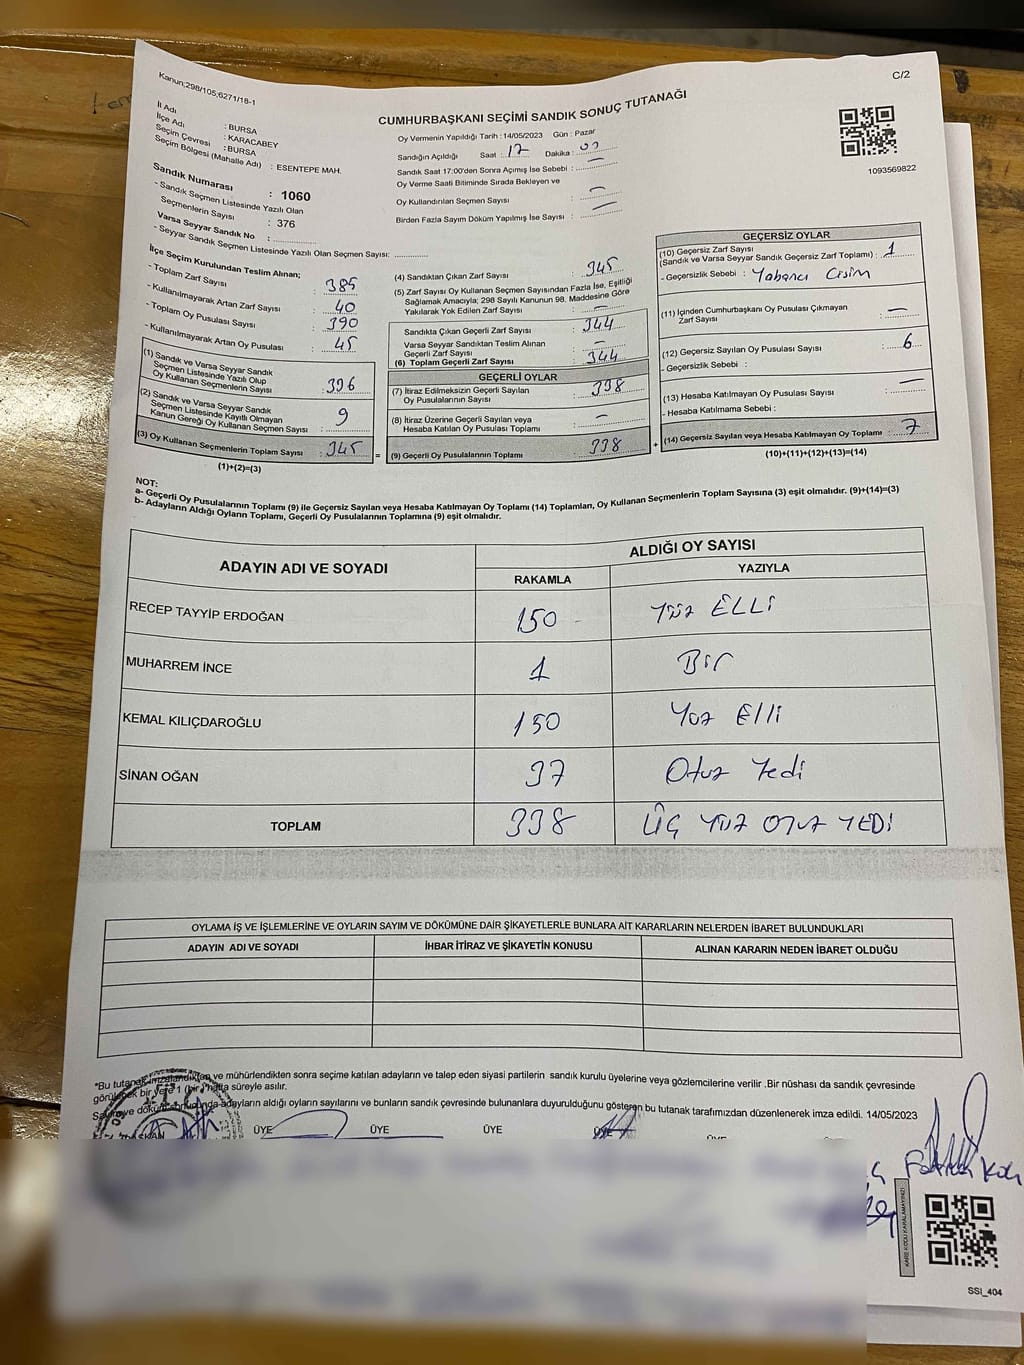 Kanun;298/105;6271/18-1
C/2
CUMHURBAŞKANI SEÇİMİ SANDIK SONUÇ TUTANAĞI
İl Adı : BURSA
İlçe Adı : KARACABEY
Seçim Çevresi : BURSA
Seçim Bölgesi (Mahalle Adı) : ESENTEPE MAH.
Sandık Numarası : 1060
- Sandık Seçmen Listesinde Yazılı Olan
Seçmenlerin Sayısı : 376
Varsa Seyyar Sandık No :
- Seyyar Sandık Seçmen Listesinde Yazılı Olan Seçmen Sayısı:
Oy Vermenin Yapıldığı Tarih :14/05/2023 Gün : Pazar
Sandığın Açıldığı Saat : 17 Dakika : 00
Sandık Saat 17:00'den Sonra Açımış İse Sebebi : —
Oy Verme Saati Bitiminde Sırada Bekleyen ve
Oy Kullandırılan Seçmen Sayısı : —
Birden Fazla Sayım Döküm Yapılmış İse Sayısı : —
1093569822
İlçe Seçim Kurulundan Teslim Alınan;
- Toplam Zarf Sayısı : 385
- Kullanılmayarak Artan Zarf Sayısı : 40
- Toplam Oy Pusulası Sayısı : 390
- Kullanılmayarak Artan Oy Pusulası : 45
(1) Sandık ve Varsa Seyyar Sandık
Seçmen Listesinde Yazılı Olup
Oy Kullanan Seçmenlerin Sayısı : 336
(2) Sandık ve Varsa Seyyar Sandık
Seçmen Listesinde Kayıtlı Olmayan
Kanun Gereği Oy Kullanan Seçmen Sayısı : 9
(3) Oy Kullanan Seçmenlerin Toplam Sayısı : 345
(1)+(2)=(3)
(4) Sandıktan Çıkan Zarf Sayısı : 345
(5) Zarf Sayısı Oy Kullanan Seçmen Sayısından Fazla İse, Eşitliği
Sağlamak Amacıyla; 298 Sayılı Kanunun 98. Maddesine Göre
Yakılarak Yok Edilen Zarf Sayısı : —
Sandıkta Çıkan Geçerli Zarf Sayısı : 344
Varsa Seyyar Sandıktan Teslim Alınan
Geçerli Zarf Sayısı : —
(6) Toplam Geçerli Zarf Sayısı : 344
GEÇERLİ OYLAR
(7) İtiraz Edilmeksizin Geçerli Sayılan
Oy Pusulalarının Sayısı : 338
(8) İtiraz Üzerine Geçerli Sayılan veya
Hesaba Katılan Oy Pusulası Toplamı : —
= (9) Geçerli Oy Pusulalarının Toplamı : 338
GEÇERSİZ OYLAR
(10) Geçersiz Zarf Sayısı
(Sandık ve Varsa Seyyar Sandık Geçersiz Zarf Toplamı) : 1
- Geçersizlik Sebebi : Yabancı Cisim
(11) İçinden Cumhurbaşkanı Oy Pusulası Çıkmayan
Zarf Sayısı : —
(12) Geçersiz Sayılan Oy Pusulası Sayısı : 6
- Geçersizlik Sebebi :
(13) Hesaba Katılmayan Oy Pusulası Sayısı : —
- Hesaba Katılmama Sebebi :
+ (14) Geçersiz Sayılan veya Hesaba Katılmayan Oy Toplamı : 7
(10)+(11)+(12)+(13)=(14)
NOT:
a- Geçerli Oy Pusulalarının Toplamı (9) ile Geçersiz Sayılan veya Hesaba Katılmayan Oy Toplamı (14) Toplamları, Oy Kullanan Seçmenlerin Toplam Sayısına (3) eşit olmalıdır. (9)+(14)=(3)
b- Adayların Aldığı Oyların Toplamı, Geçerli Oy Pusulalarının Toplamına (9) eşit olmalıdır.
ADAYIN ADI VE SOYADI
ALDIĞI OY SAYISI
RAKAMLA YAZIYLA
RECEP TAYYİP ERDOĞAN 150 Yüz ELLİ
MUHARREM İNCE 1 Bir
KEMAL KILIÇDAROĞLU 150 Yüz Elli
SİNAN OĞAN 37 Otuz Yedi
TOPLAM 338 ÜÇ YÜZ OTUZ YEDİ
OYLAMA İŞ VE İŞLEMLERİNE VE OYLARIN SAYIM VE DÖKÜMÜNE DAİR ŞİKAYETLERLE BUNLARA AİT KARARLARIN NELERDEN İBARET BULUNDUKLARI
ADAYIN ADI VE SOYADI İHBAR İTİRAZ VE ŞİKAYETİN KONUSU ALINAN KARARIN NEDEN İBARET OLDUĞU
*Bu tutanak imzalandıktan ve mühürlendikten sonra seçime katılan adayların ve talep eden siyasi partilerin sandık kurulu üyelerine veya gözlemcilerine verilir .Bir nüshası da sandık çevresinde
görülecek bir yere 1 (bir ) hafta süreyle asılır.
Sayım ve döküm sonucunda adayların aldığı oyların sayılarını ve bunların sandık çevresinde bulunanlara duyurulduğunu gösteren bu tutanak tarafımızdan düzenlenerek imza edildi. 14/05/2023
BAŞKAN ÜYE ÜYE ÜYE ÜYE
KARE KODU KARALAMAYINIZ!
SSİ_404